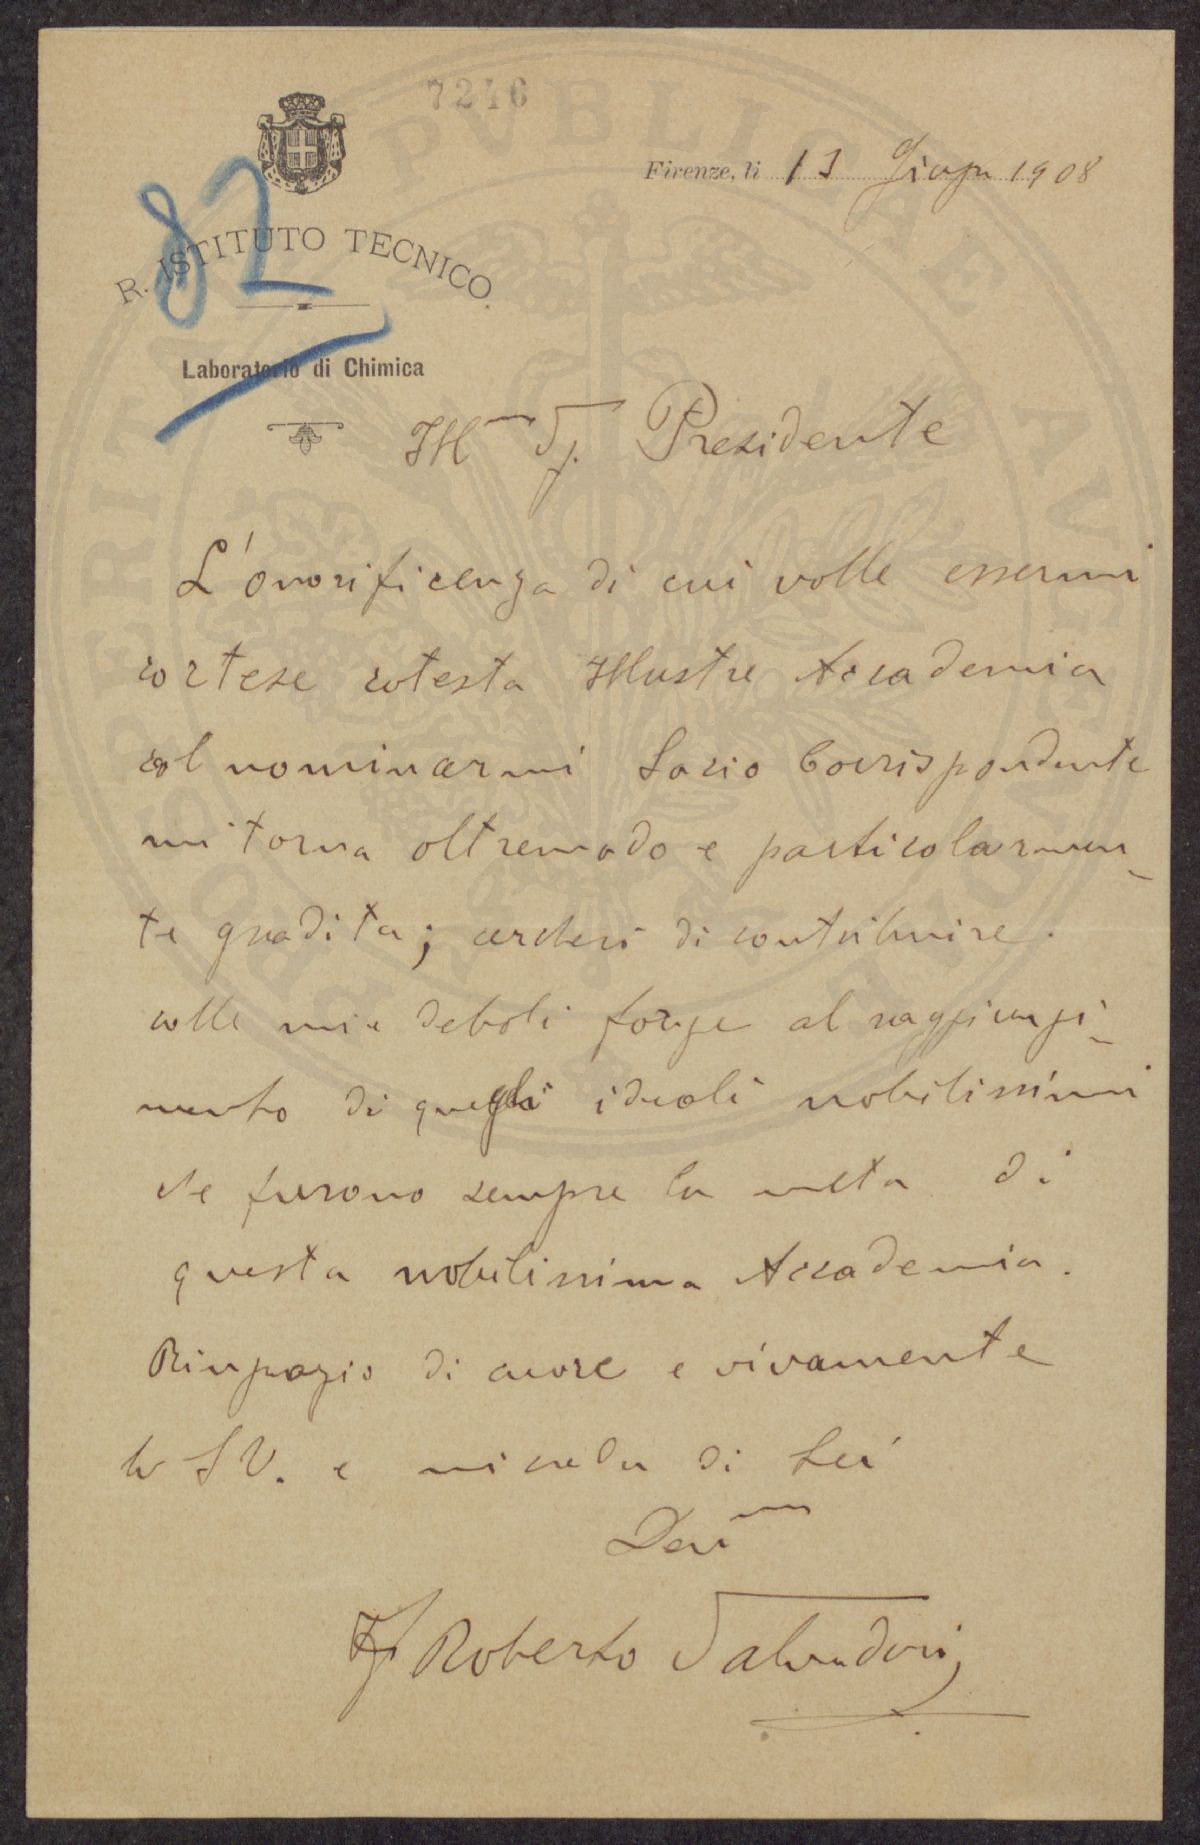 7246
Firenze, li 13 Giugn 1908
82
R. ISTITUTO TECNICO.
Laboratorio di Chimica
Ill^mo Sg. Presidente
L'onorificenza di cui volle essermi
cortese cotesta Illustre Accademia
col nominarmi Socio Corrispondente
mi torna oltremodo e particolarmen-
te gradita; cercherò di contribuire
colle mie deboli forze al raggiungi-
mento di quegli ideali nobilissimi
che furono sempre la meta di
questa nobilissima Accademia.
Ringrazio di cuore e vivamente
la S V. e mi creda di Lei
Dev^mo
Roberto Salvadori
PVBLICAE AVGENDAE PROSPERITATI